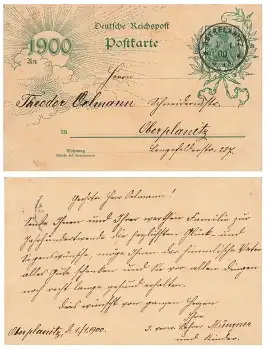 Deutsche Reichspost
Postkarte
1900
An
Herrn
Theodor Oelmann
Schneidermstr.
in Oberplanitz
Wohnung
Lengefelderstr. 25
OBERPLANITZ
Geehrter Herr Oelmann!
Sende Ihnen und Ihrer werthen Familie zur
Jahrhundertwende die herzlichsten Glück- und
Segenswünsche, möge Ihnen der himmlische Vater
alles Gute schenken und Sie vor allen Dingen
noch recht lange gesund erhalten.
Dies wünscht von ganzem Herzen
Ihr
Oberplanitz, d. 1/1. 1900.
und Kinder.